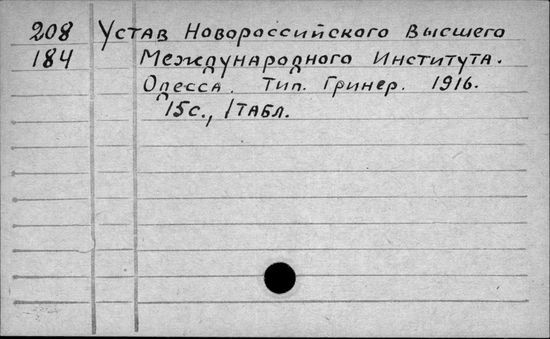 208 Устав Новороссийского Высшего
184 Международного Института.
Одесса. Тип. Гринер. 1916.
15с., 1 табл.